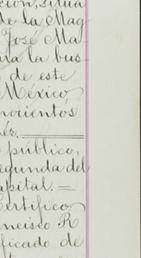 cion, situa
de la Mag
José Ma
na la bus
de este
México,
novecientos
nés.
público,
egunda del
apital. =
Certifico
ncisco R
ficado de